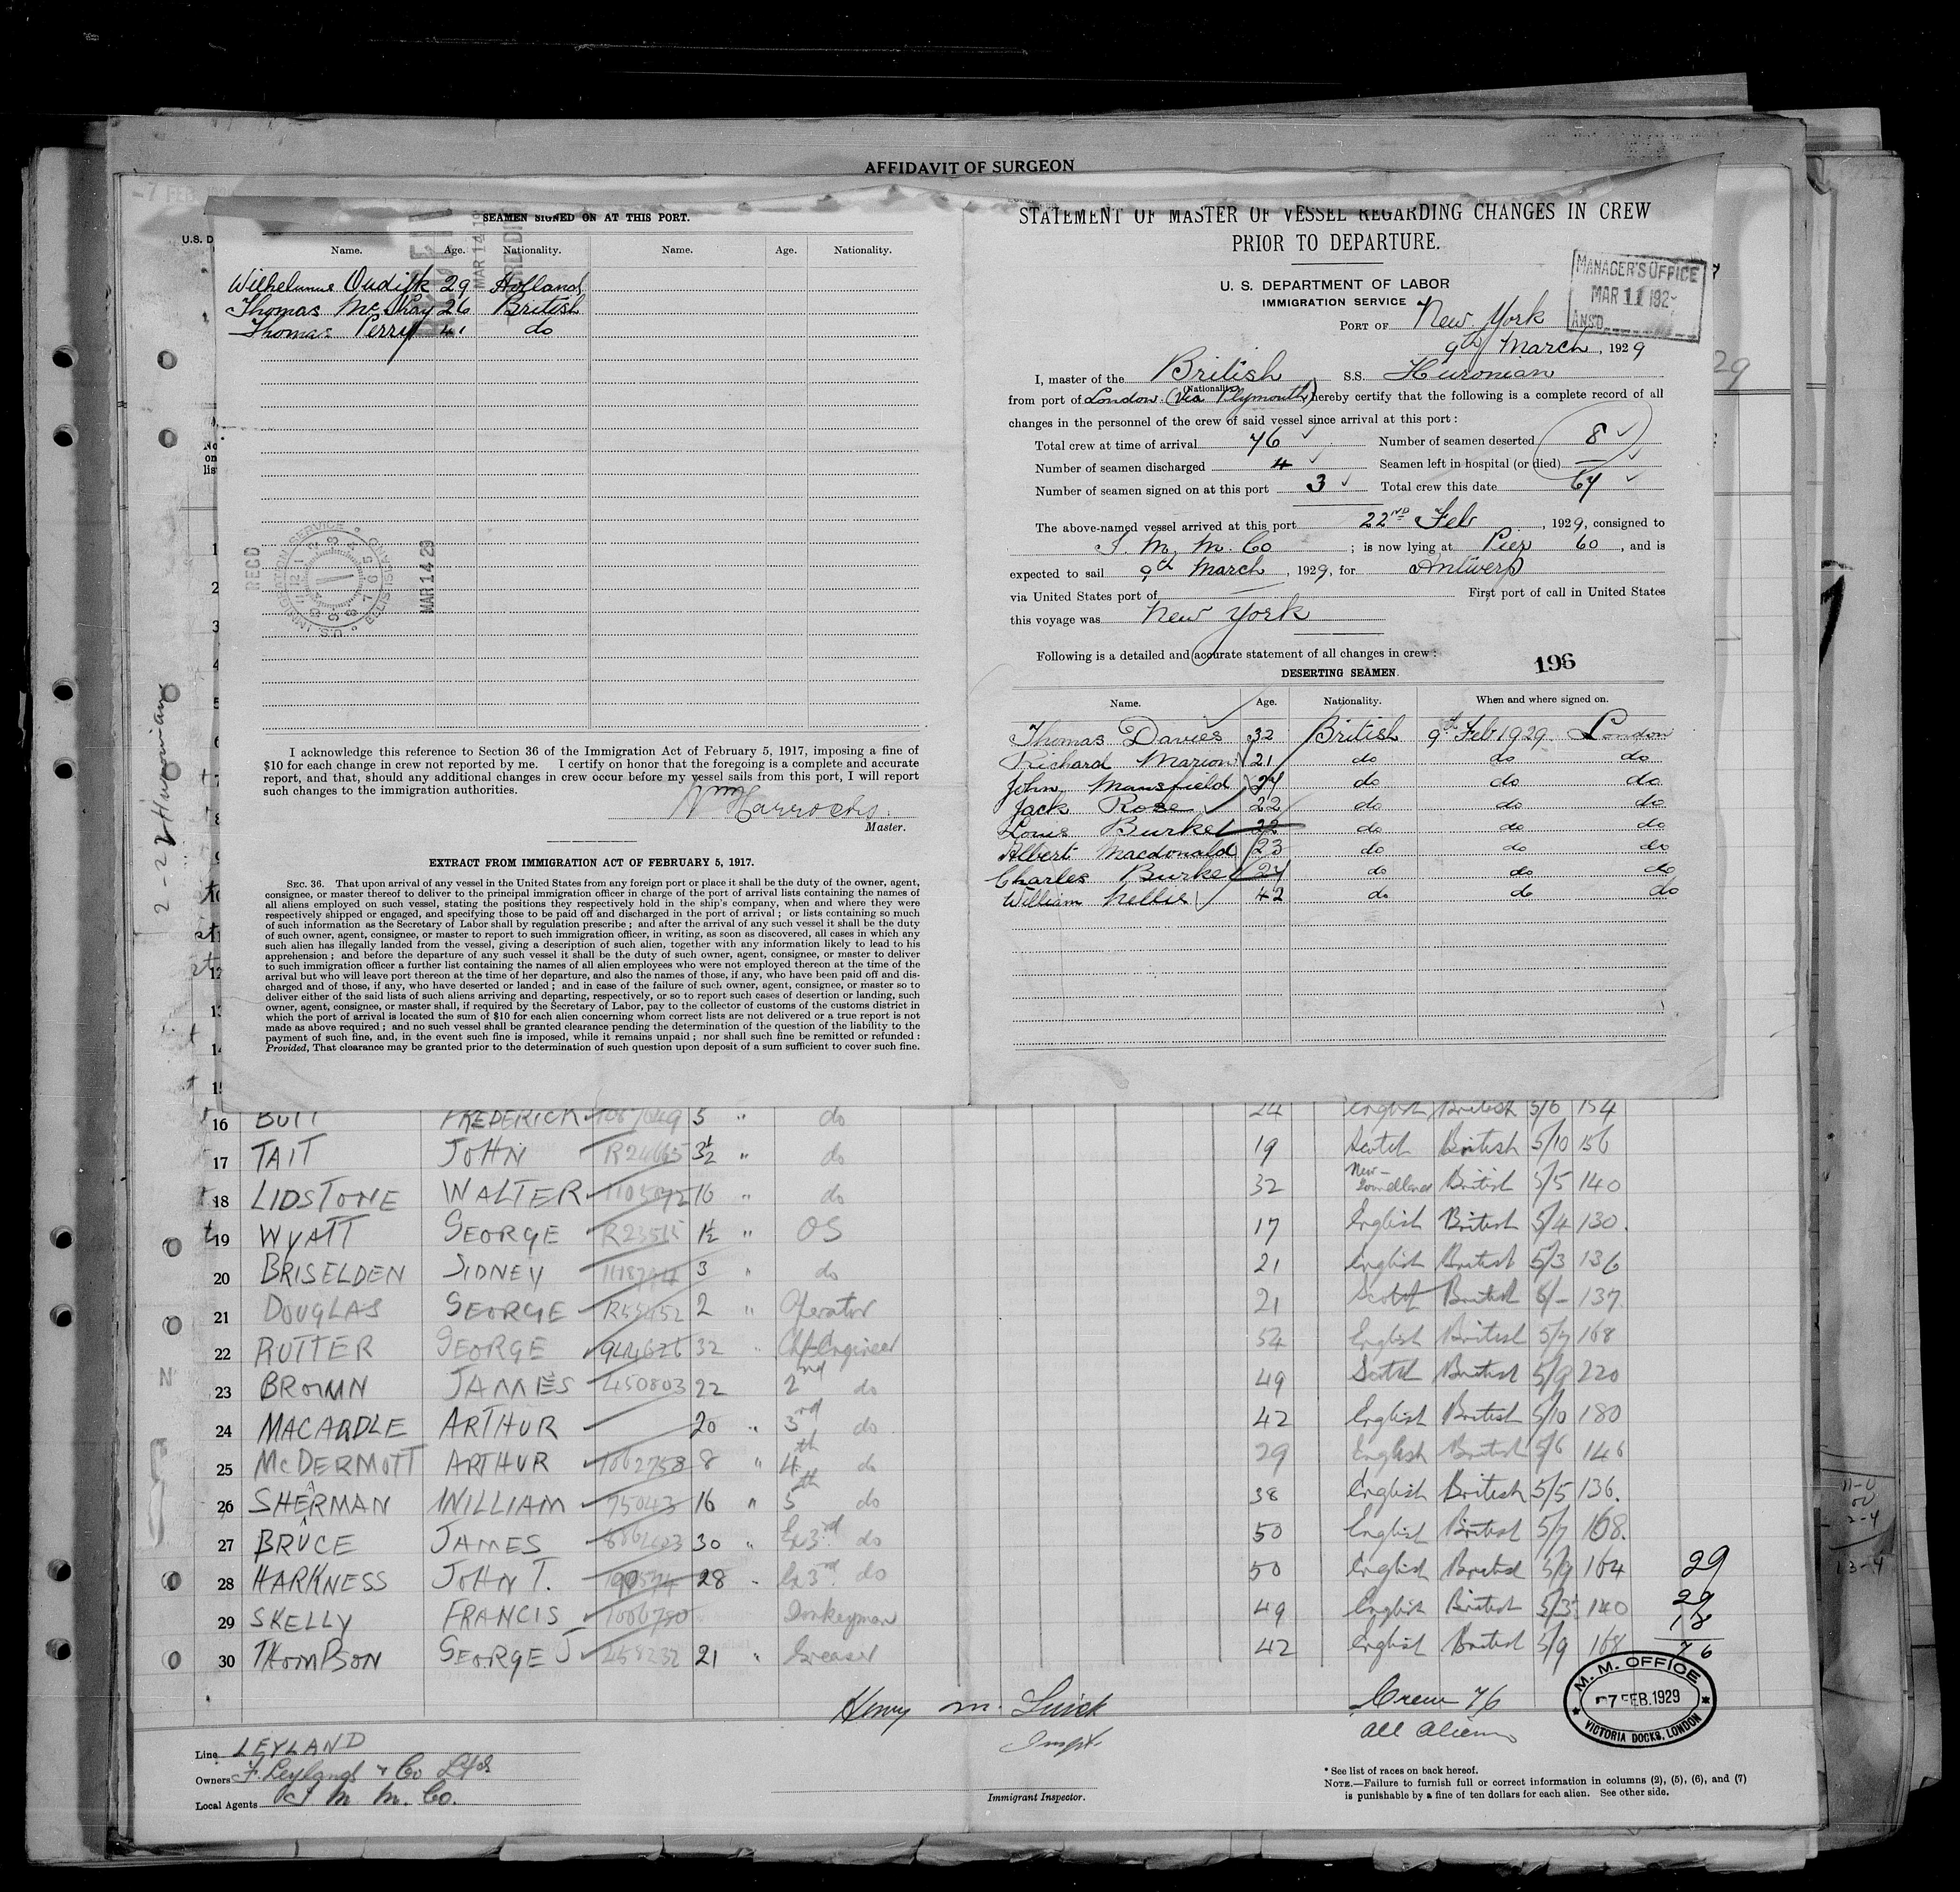 AFFIDAVIT OF SURGEON
-7 FEB
U.S. D
SEAMEN SIGNED ON AT THIS PORT.
Name. Age. Nationality. Name. Age. Nationality.
Wilhelmus Oudijk 29 Holland
Thomas 26 British
Thomas Perry 41 do
REC'D
U.S. IMMIGRATION SERVICE ELLIS ISLAND
MAR 14 29
I acknowledge this reference to Section 36 of the Immigration Act of February 5, 1917, imposing a fine of
$10 for each change in crew not reported by me. I certify on honor that the foregoing is a complete and accurate
report, and that, should any additional changes in crew occur before my vessel sails from this port, I will report
such changes to the immigration authorities.
Wm
Master.
EXTRACT FROM IMMIGRATION ACT OF FEBRUARY 5, 1917.
SEC. 36. That upon arrival of any vessel in the United States from any foreign port or place it shall be the duty of the owner, agent,
consignee, or master thereof to deliver to the principal immigration officer in charge of the port of arrival lists containing the names of
all aliens employed on such vessel, stating the positions they respectively hold in the ship's company, when and where they were
respectively shipped or engaged, and specifying those to be paid off and discharged in the port of arrival; or lists containing so much
of such information as the Secretary of Labor shall by regulation prescribe; and after the arrival of any such vessel it shall be the duty
of such owner, agent, consignee, or master to report to such immigration officer, in writing, as soon as discovered, all cases in which any
such alien has illegally landed from the vessel, giving a description of such alien, together with any information likely to lead to his
apprehension; and before the departure of any such vessel it shall be the duty of such owner, agent, consignee, or master to deliver
to such immigration officer a further list containing the names of all alien employees who were not employed thereon at the time of the
arrival but who will leave port thereon at the time of her departure, and also the names of those, if any, who have been paid off and dis-
charged and of those, if any, who have deserted or landed; and in case of the failure of such owner, agent, consignee, or master so to
deliver either of the said lists of such aliens arriving and departing, respectively, or so to report such cases of desertion or landing, such
owner, agent, consignee, or master shall, if required by the Secretary of Labor, pay to the collector of customs of the customs district in
which the port of arrival is located the sum of $10 for each alien concerning whom correct lists are not delivered or a true report is not
made as above required; and no such vessel shall be granted clearance pending the determination of the question of the liability to the
payment of such fine, and, in the event such fine is imposed, while it remains unpaid; nor shall such fine be remitted or refunded:
Provided, That clearance may be granted prior to the determination of such question upon deposit of a sum sufficient to cover such fine.
STATEMENT OF MASTER OF VESSEL REGARDING CHANGES IN CREW
PRIOR TO DEPARTURE.
U. S. DEPARTMENT OF LABOR
IMMIGRATION SERVICE
MANAGER'S OFFICE
MAR 11 192
ANS'D
PORT OF New York
9th March, 1929
I, master of the British S.S. Huronian
(Nationality)
from port of London (Via Plymouth) hereby certify that the following is a complete record of all
changes in the personnel of the crew of said vessel since arrival at this port:
Total crew at time of arrival 76 Number of seamen deserted 8
Number of seamen discharged 4 Seamen left in hospital (or died) —
Number of seamen signed on at this port 3 Total crew this date 67
The above-named vessel arrived at this port 22nd Feb, 1929, consigned to
I. M. M. Co; is now lying at Pier 60, and is
expected to sail 9th March, 1929, for Antwerp
via United States port of — First port of call in United States
this voyage was New York
Following is a detailed and accurate statement of all changes in crew:
196
DESERTING SEAMEN.
Name. Age. Nationality. When and where signed on.
Thomas Davies 32 British 9th Feb 1929. London
Richard Marion 21 do do do
John Mansfield 24 do do do
Jack Rose 22 do do do
Louis Burke 22 do do do
Albert Macdonald 23 do do do
Charles Burke 24 do do do
William Nellis 42 do do do
2-22 Huronian
16 BUTT FREDERICK 5 " do 24 English British 5/6 154
17 TAIT JOHN R24665 3½ " do 19 Scotch British 5/10 156
18 LIDSTONE WALTER 16 " do 32 British 5/5 140
19 WYATT GEORGE R23515 1½ " OS 17 English British 5/4 130.
20 BRISELDEN SIDNEY 3 " do 21 English British 5/3 136
21 DOUGLAS GEORGE 2 " Operator 21 Scotch British 6/- 137
22 RUTTER GEORGE 32 " Chf Engineer 54 English British 5/7 168
23 BROWN JAMES 450803 22 2nd do 49 Scotch British 5/9 220
24 MACARDLE ARTHUR 20 " 3rd do 42 English British 5/10 180
25 McDERMOTT ARTHUR 1062758 8 " 4th do 29 English British 5/6 146
26 SHERMAN WILLIAM 75043 16 " 5th do 38 English British 5/5 136.
27 BRUCE JAMES 30 " Ex 3rd do 50 English British 5/7 168.
28 HARKNESS JOHN T. 28 " Ex 3rd do 50 English British 5/9 164 29
29 SKELLY FRANCIS 1006780 Donkeyman 49 English British 5/3 140 29
18
30 THOMPSON GEORGE J 458232 21 " Greaser 42 English British 5/9 168 76
Henry M.
Crew 76
All Aliens
I. M. M. OFFICE
-7 FEB. 1929
VICTORIA DOCKS, LONDON
Line LEYLAND
Owners F. Leyland & Co Ltd
Local Agents I M M. Co.
Immigrant Inspector.
* See list of races on back hereof.
NOTE.—Failure to furnish full or correct information in columns (2), (5), (6), and (7)
is punishable by a fine of ten dollars for each alien. See other side.